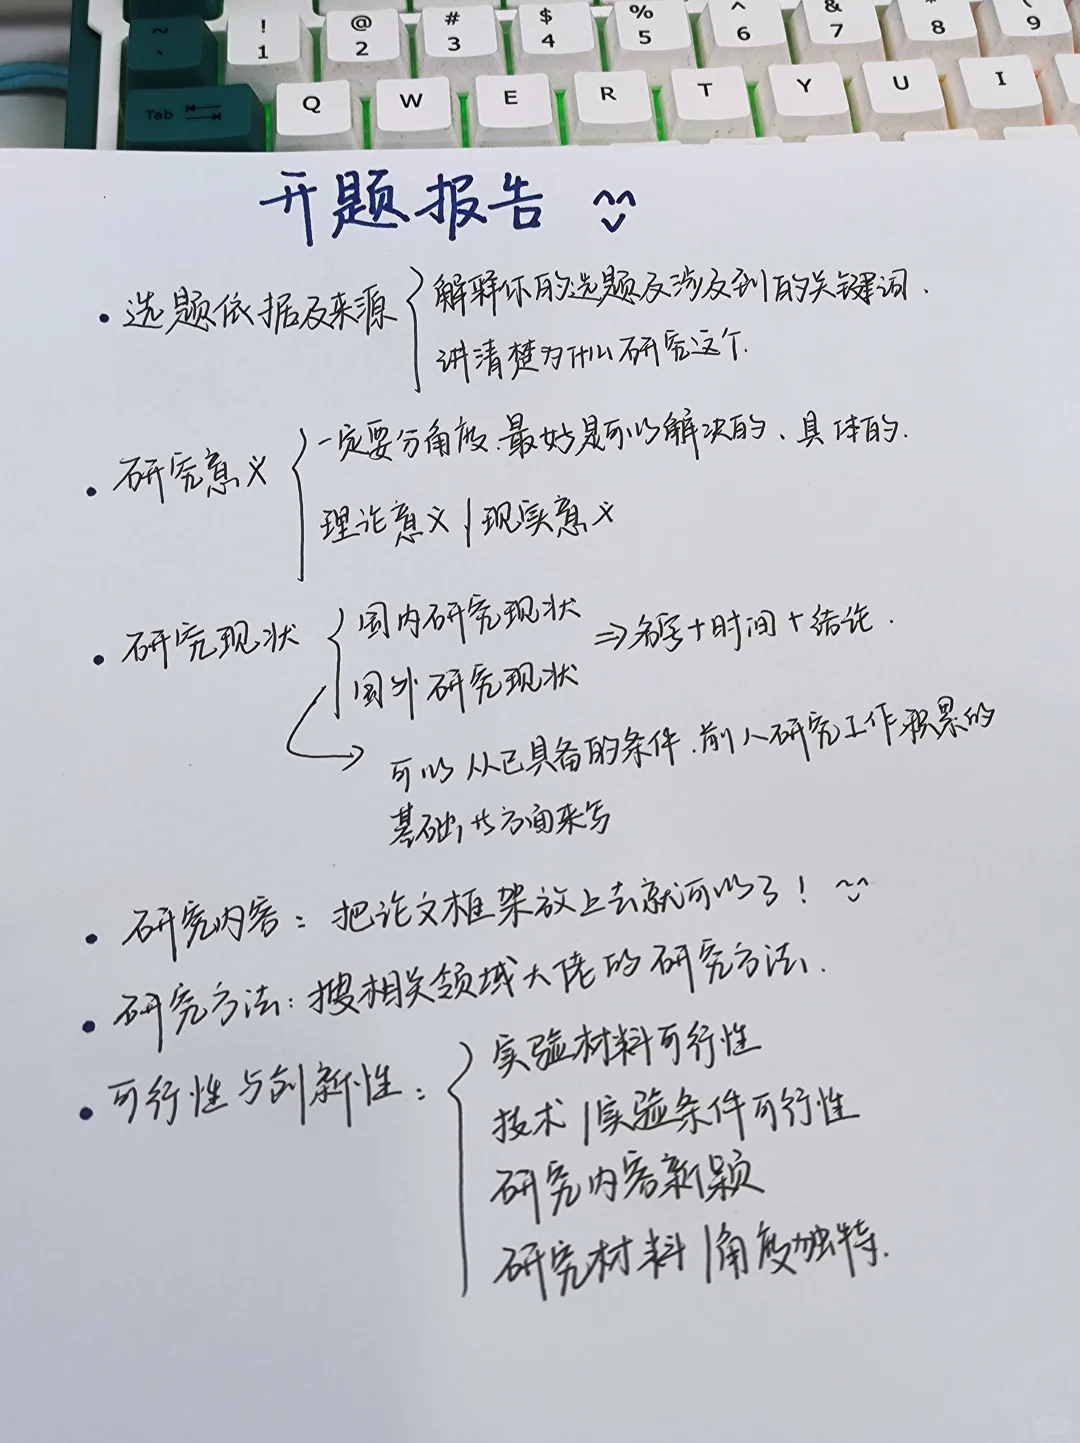 ~ ! @ # $ % ^ & * (
` 1 2 3 4 5 6 7 8 9
Tab Q W E R T Y U I
开题报告
• 选题依据及来源
解释你的选题及涉及到的关键词.
讲清楚为什么研究这个.
• 研究意义
一定要分角度.最好是可以解决的、具体的.
理论意义 | 现实意义
• 研究现状
国内研究现状
国外研究现状
⇒名字+时间+结论.
可以从已具备的条件.前人研究工作积累的
基础,等方面来写
• 研究内容: 把论文框架放上去就可以了!
• 研究方法: 搜相关领域大佬的研究方法.
• 可行性与创新性:
实验材料可行性
技术/实验条件可行性
研究内容新颖
研究材料/角度独特.